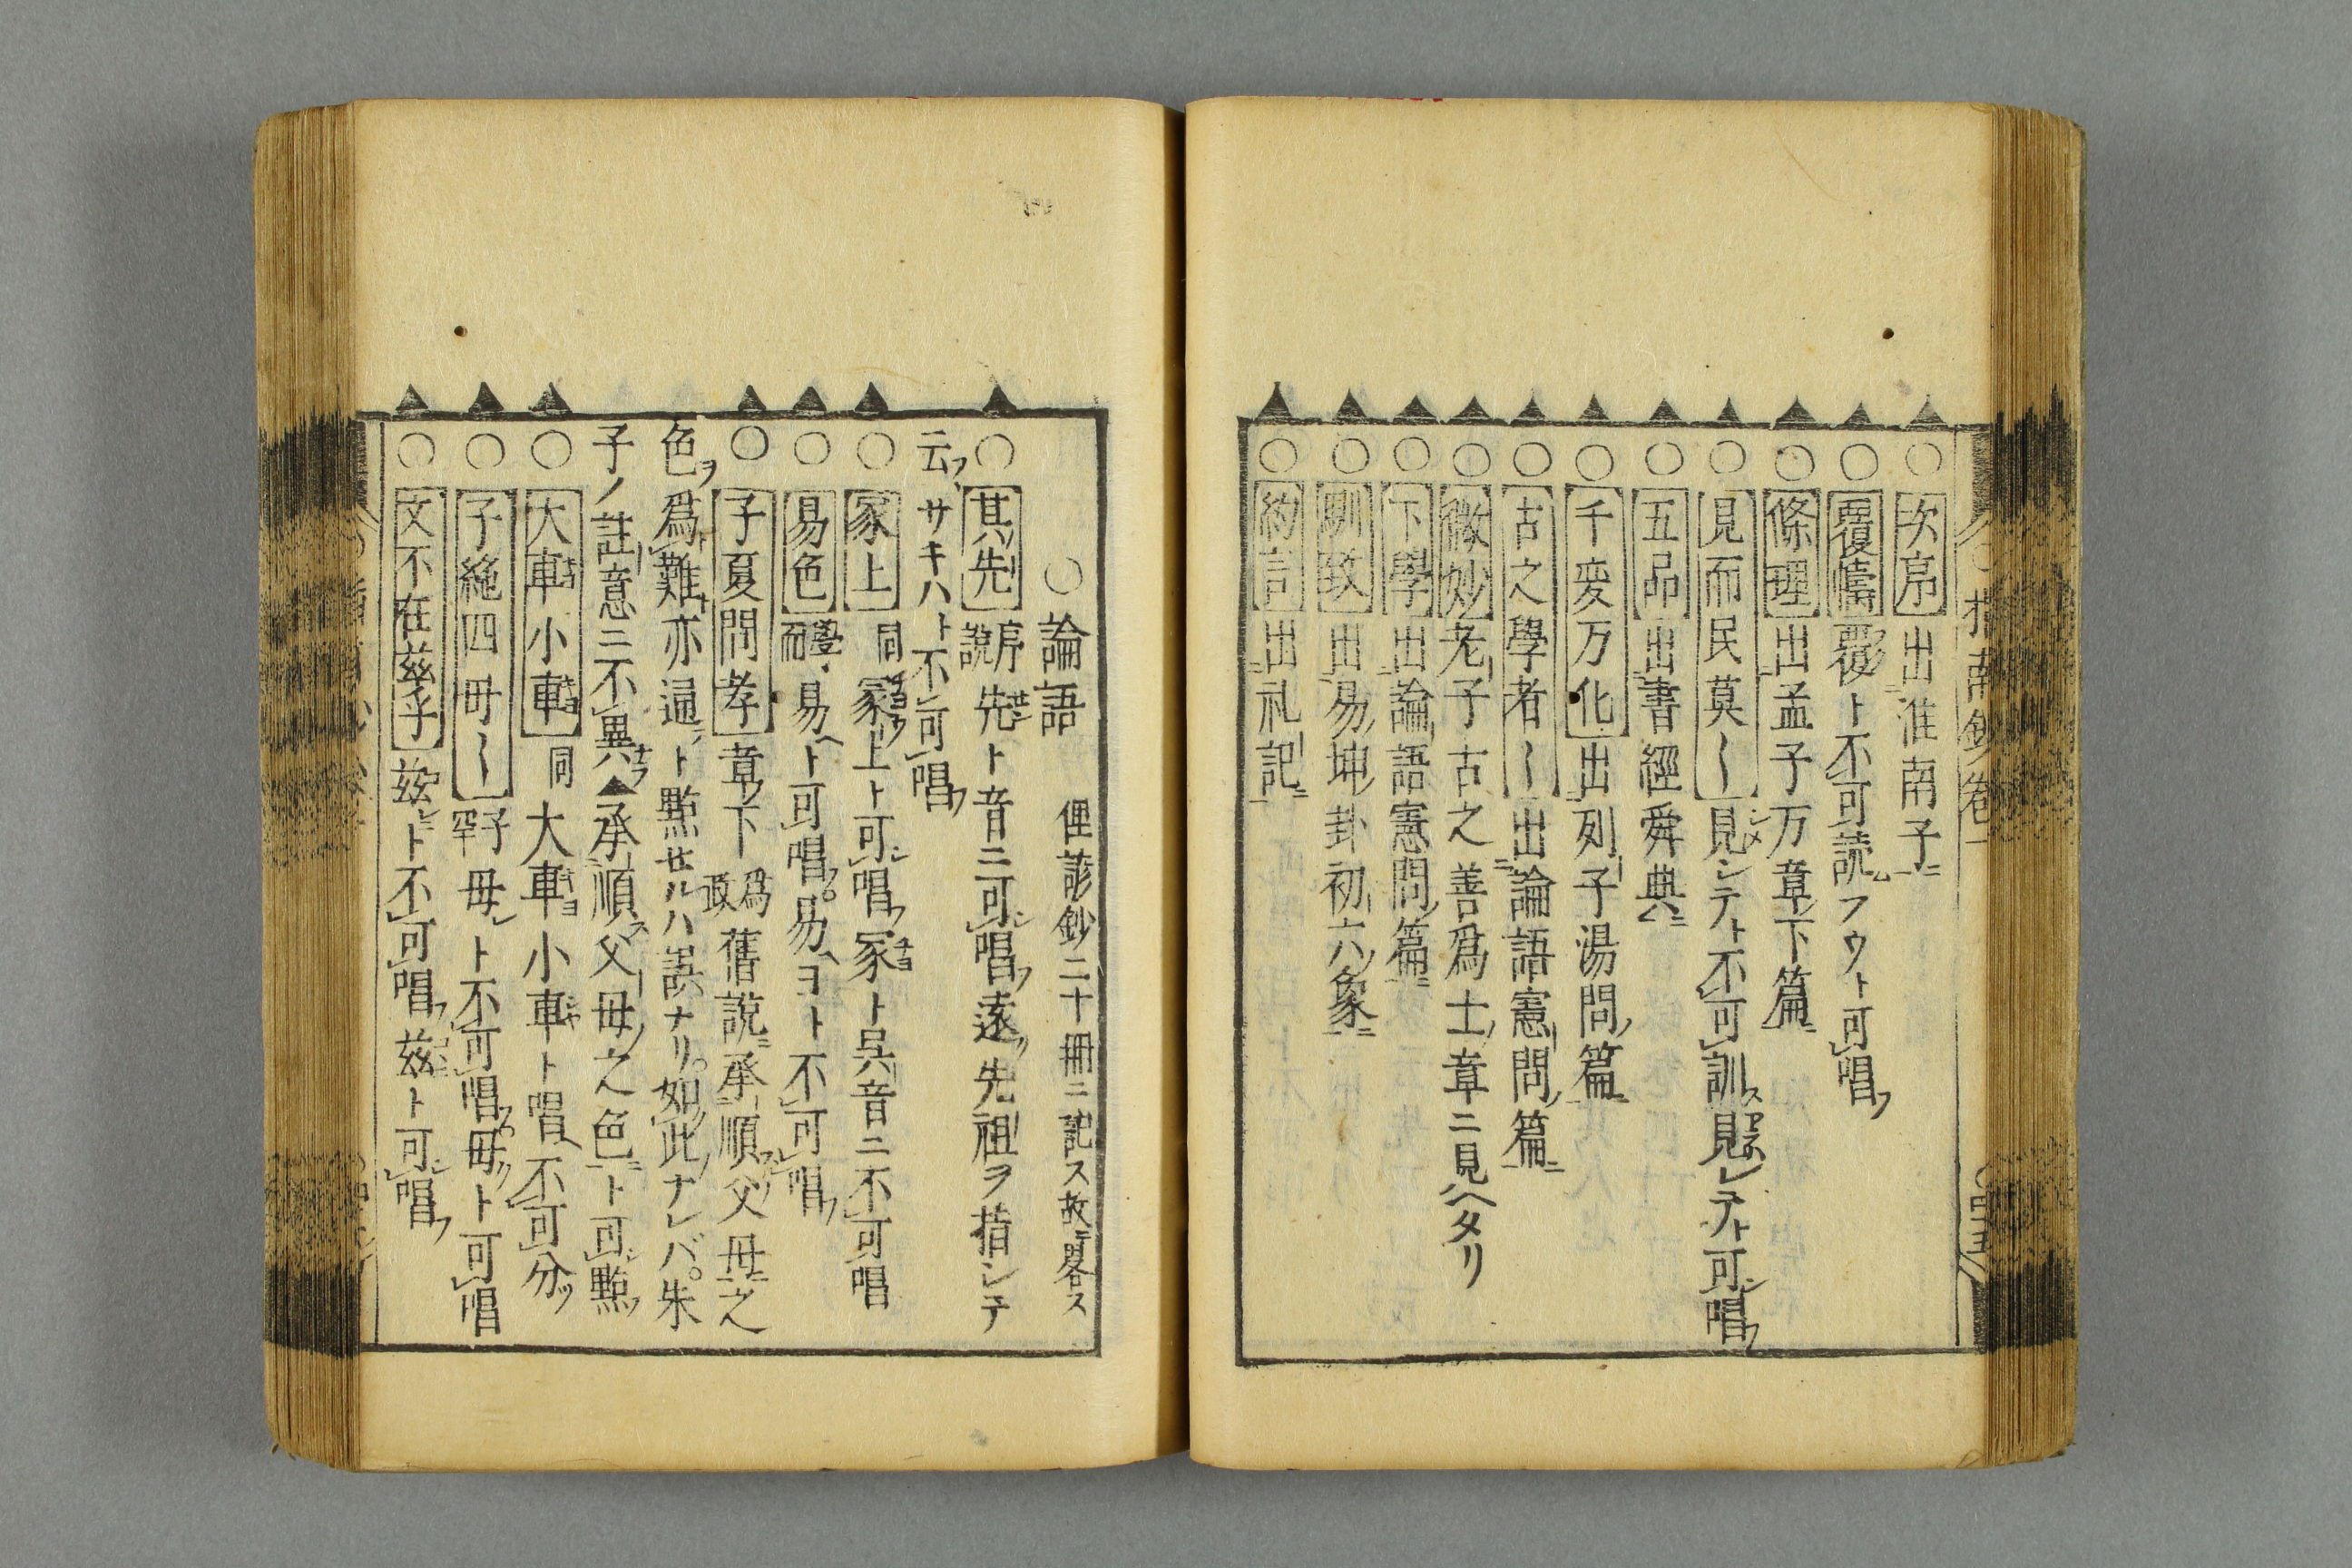 ○次序 出淮南子ニ
○覆幬 覆ト不可読フウト可唱フ
○條理 出孟子万章下篇ニ
○見而民莫〱 見シテト不可訓ス見レテト可唱フ
○五品 出書經舜典ニ
○千変万化 出列子湯問篇ニ
○古之學者〱 出論語憲問篇ニ
○微妙 老子古之善爲士章ニ見ヘタリ
○下學 出論語憲問篇ニ
○馴致 出易坤卦初六象ニ
○約言 出礼記ニ
○論語 俚諺鈔二十冊ニ記ス故ニ畧ス
○其先 序説 先ト音ニ可唱フ遠先祖ヲ指シテ
云フ、サキハト不可唱フ
○冢上 同 冢上ト可唱フ冢ト呉音ニ不可唱
○易色 學而 易ヘト可唱フ。易ヘヨト不可唱フ
○子夏問孝 章下 爲政 舊説ニ承順父母ニ之
色ヲ爲難亦通ト㸃セルハ誤ナリ。如此ナレバ。朱
子ノ註意ニ不異ナラ▲承順ス父母之色ニト可㸃
○大車小車 同 大車小車ト唱ヘ不可分ツ
○子絶四毋〱 子罕 毋レト不可唱フ。毋ト可唱
○文不在茲乎 茲ト不可唱フ茲ト可唱フ